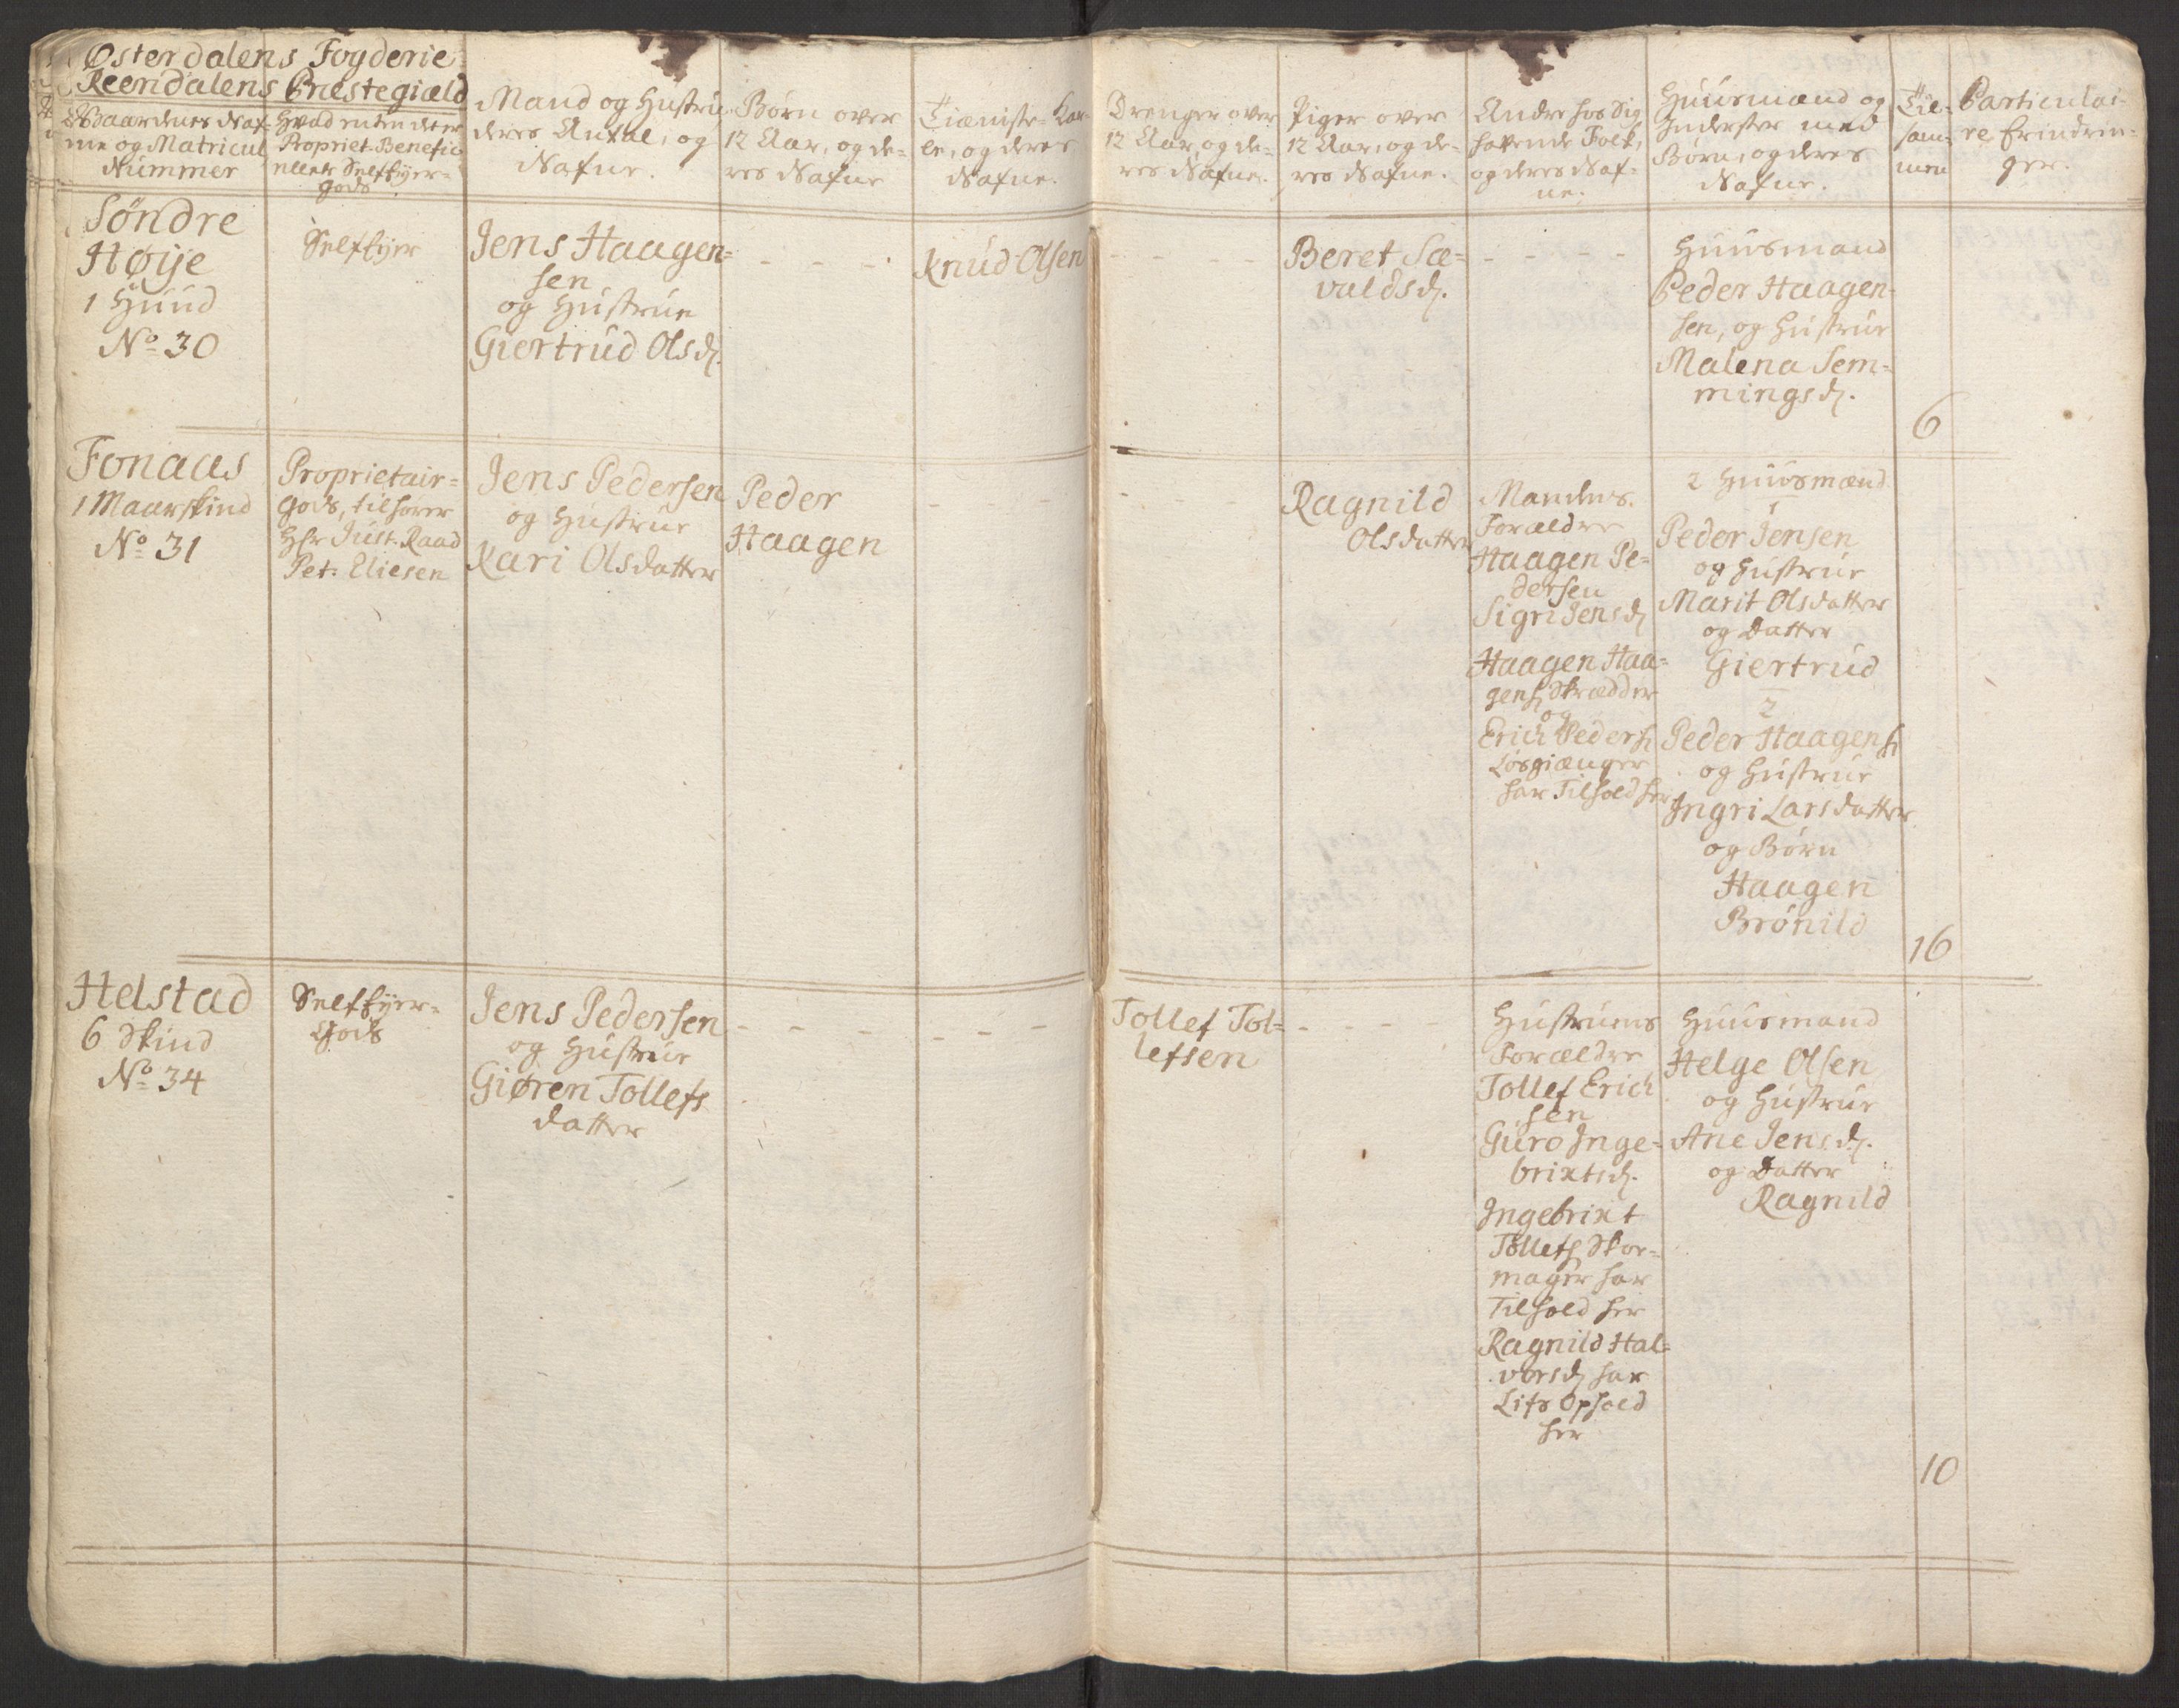 Østerdalens Fogderie
Reendalens Præstegiæld
Gaardenes Naf-
ne og Matricul
Nummer
Hvad enten det er
Propriet. Benefic.
eller Selfeyer-
gods
Mand og Hustru
deres Antal, og
Nafne.
Børn over
12 Aar, og de-
res Nafne
Tieniste-Kar-
le, og deres
Nafne.
Drenger over
12 Aar, og de-
res Nafne.
Piger over
12 Aar, og de-
res Nafne.
Andre hos sig
hafvende Folk,
og deres Naf-
ne.
Huusmænd og
Inderster med
Børn, og deres
Nafne.
Til-
sam-
men
Particulai-
re Erindrin-
ger.
Søndre
Høÿe
1 Huud
No 30
Selfeyer
Jens Haagen-
sen
og Hustrue
Giertrud Olsd.
- - - -
Knud Olsen
- - - -
Beret Sæ-
valdsd.
- - - -
Huusmand
Peder Haagen-
sen, og Hustrue
Malena Sem-
mingsd.
6
Fonaas
1 Maarskind
No 31
Proprietair-
gods, tilhører
Hr Just. Raad
Pet. Eliesen
Jens Pedersen
og Hustrue
Kari Olsdatter
Peder
Haagen
- - -
- - -
Ragnild
Olsdatter
Mandens
Forældre
Haagen Pe-
dersen
Sigri Jensd
Haagen Haa-
gens. Skrædder
og
Erich Peders.
Løsgiænger
har Tilhold her
2 Huusmænd
1
Peder Jensen
og Hustrue
Marit Olsdatter
og Datter
Giertrud
2
Peder Haagens.
og Hustrue
Ingri Larsdatter
og Børn
Haagen
Brønild
16
Helstad
6 Skind
No 34
Selfeyer-
Gods
Jens Pedersen
og Hustrue
Giøren Tollefs
datter
- - - -
- - -
Tollef Tol-
lefsen
- - - -
Hustruens
Forældre
Tollef Erich
sen
Guro Inge-
brixtsd.
Ingebrixt
Tollefs. Skoe-
mager har
Tilhold her
Ragnild Hal-
vorsd har
Lifs Ophold
her
Huusmand
Helge Olsen
og Hustrue
Ane Jensd.
og Datter
Ragnild
10